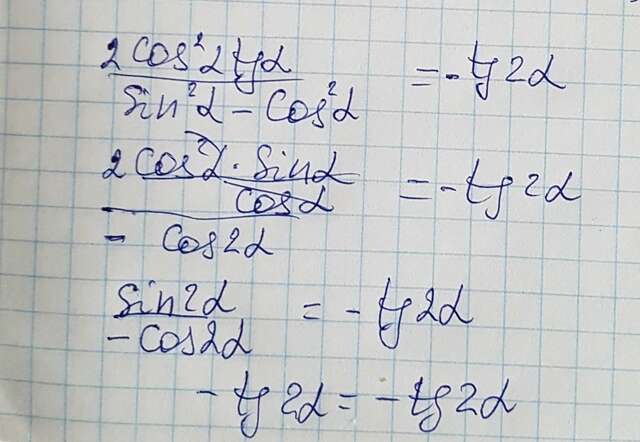 2 cos²α tgα / sin²α - cos²α = - tg 2α
2 cos²α · sinα / cosα / - cos2α = - tg 2α
sin2α / - cos2α = - tg 2α
- tg 2α = - tg 2α